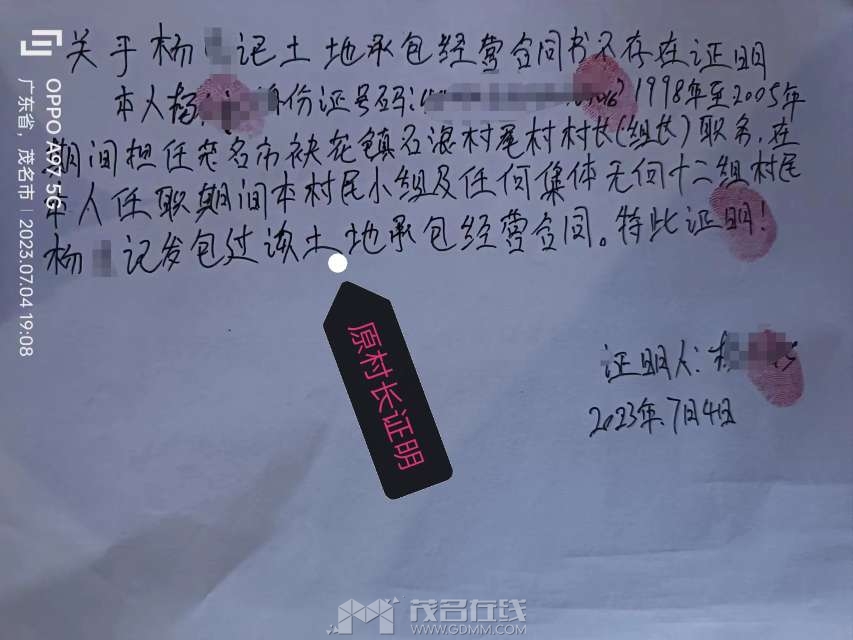 关于杨 记土地承包经营合同书不存在证明
本人杨 身份证号码: 1998年至2005年
期间担任茂名市袂花镇石浪村尾村村长(组长)职务,在
本人任职期间本村民小组及任何集体无向十二组村民
杨 记发包过该土地承包经营合同。特此证明!
证明人:杨
2023年7月4日
原村长证明
OPPO A97 5G
广东省,茂名市 | 2023.07.04 19:08
茂名在线
WWW.GDMM.COM